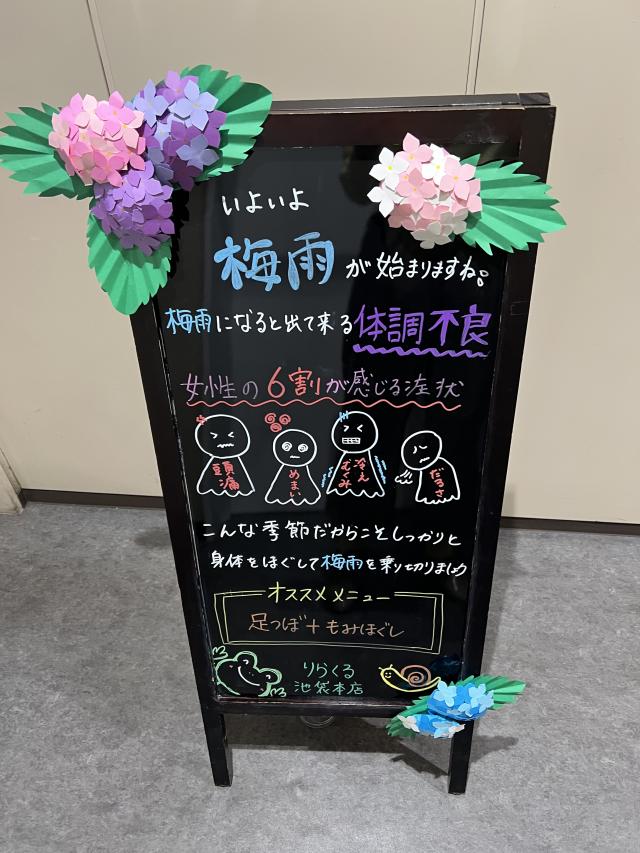 いよいよ
梅雨が始まりますね。
梅雨になると出て来る体調不良
女性の6割が感じる症状
頭痛
めまい
冷え
むくみ
だるさ
こんな季節だからこそしっかりと
身体をほぐして梅雨を乗り切りましょう
オススメメニュー
足つぼ+もみほぐし
りらくる
池袋本店